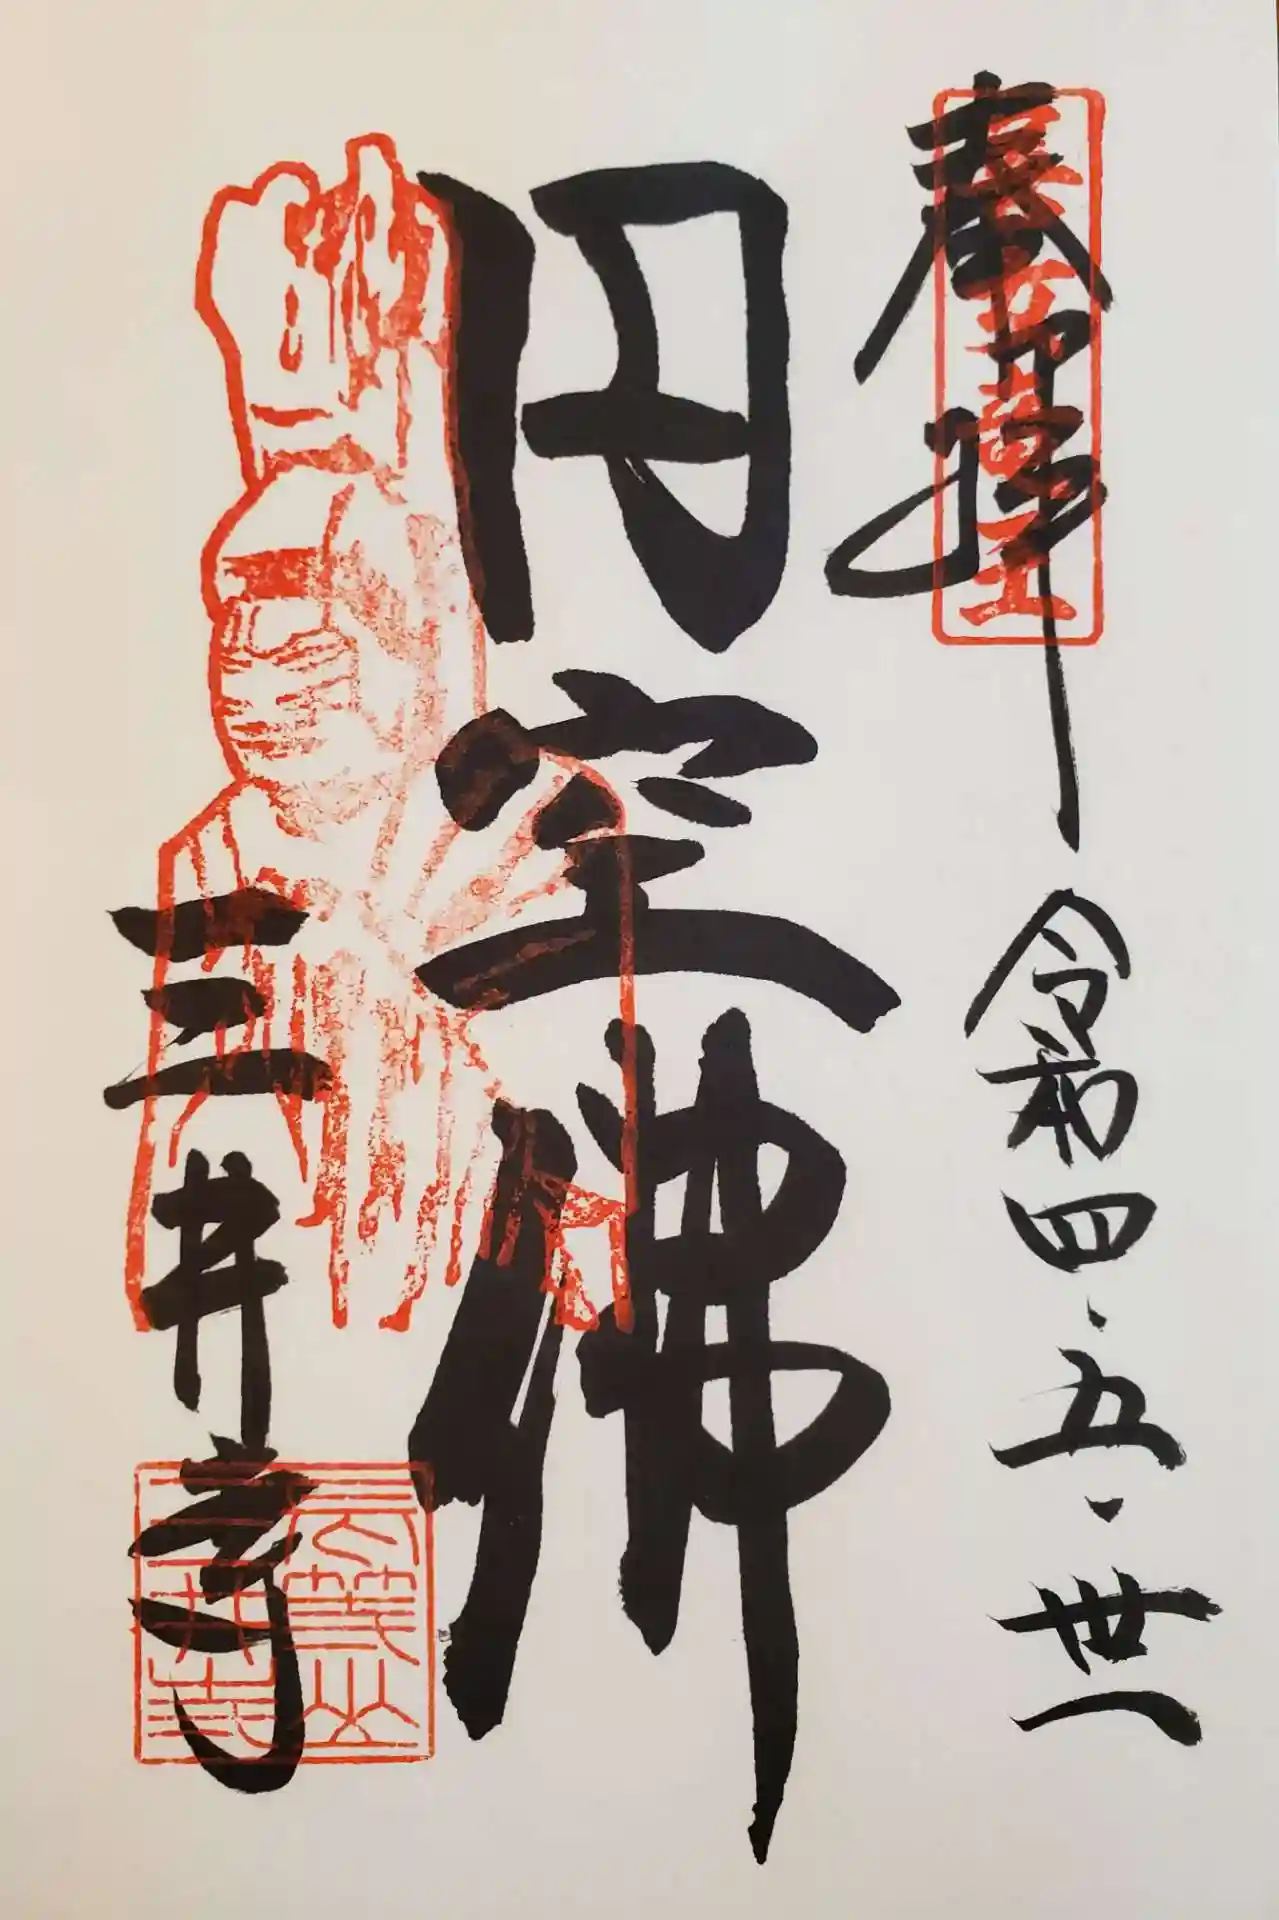 奉拝
令和四・五・丗一
円空佛
三井寺